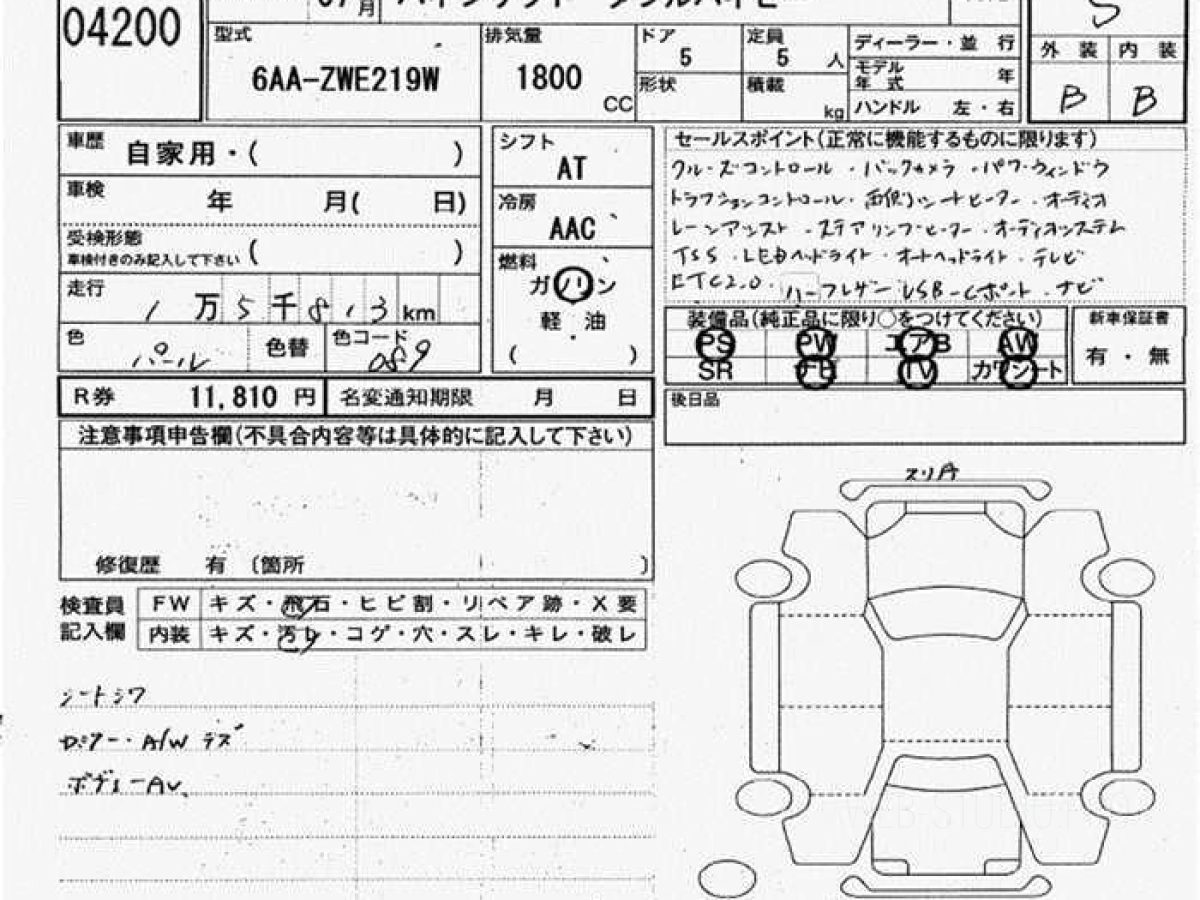 04200
月
型式
6AA-ZWE219W
排気量
1800
CC
ドア
5
定員
5 人
形状
積載
kg
ディーラー・並 行
モデル年式 年
ハンドル 左・右
S
外装 内装
B B
車歴
自家用・( )
車検
年 月( 日)
受検形態
車検付きのみ記入して下さい ( )
走行
1 万 5 千 8 1 3 km
色
パール
色替
色コード
089
シフト
AT
冷房
AAC
燃料
ガソリン
軽・油
( )
セールスポイント(正常に機能するものに限ります)
クルーズコントロール・バックカメラ・パワーウィンドウ
トラクションコントロール・両側シートヒーター・オーディオ
レーンアシスト・ステアリングヒーター・オーディオシステム
TSS・LEDヘッドライト・オートヘッドライト・テレビ
ETC2.0・ハーフレザー USB-Cポート・ナビ
装備品(純正品に限り○をつけてください)
PS PW エアB AW
SR ナビ TV カワシート
新車保証書
有・無
R券 11,810 円
名変通知期限 月 日
後日品
注意事項申告欄(不具合内容等は具体的に記入して下さい)
修復歴 有 〔箇所 〕
スリ有
検査員記入欄
FW キズ・飛石・ヒビ割・リペア跡・X要
内装 キズ・汚レ・コゲ・穴・スレ・キレ・破レ
シートシワ
A/W
ボディー